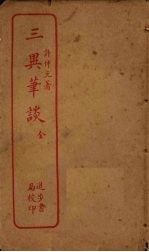 許仲元著
三異筆談 全
進步書
局校印